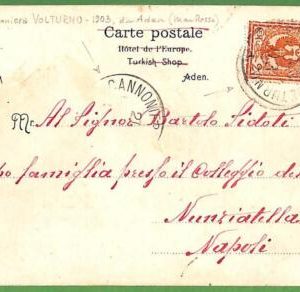 VOLTURNO - 1903, da Aden (Mar Rosso)
Carte postale
Hôtel de l'Europe.
Turkish Shop
Aden.
CANNONI
Al Signor Bartolo Sidoti
po famiglia presso il Colleggio del
Nunziatella
Napoli